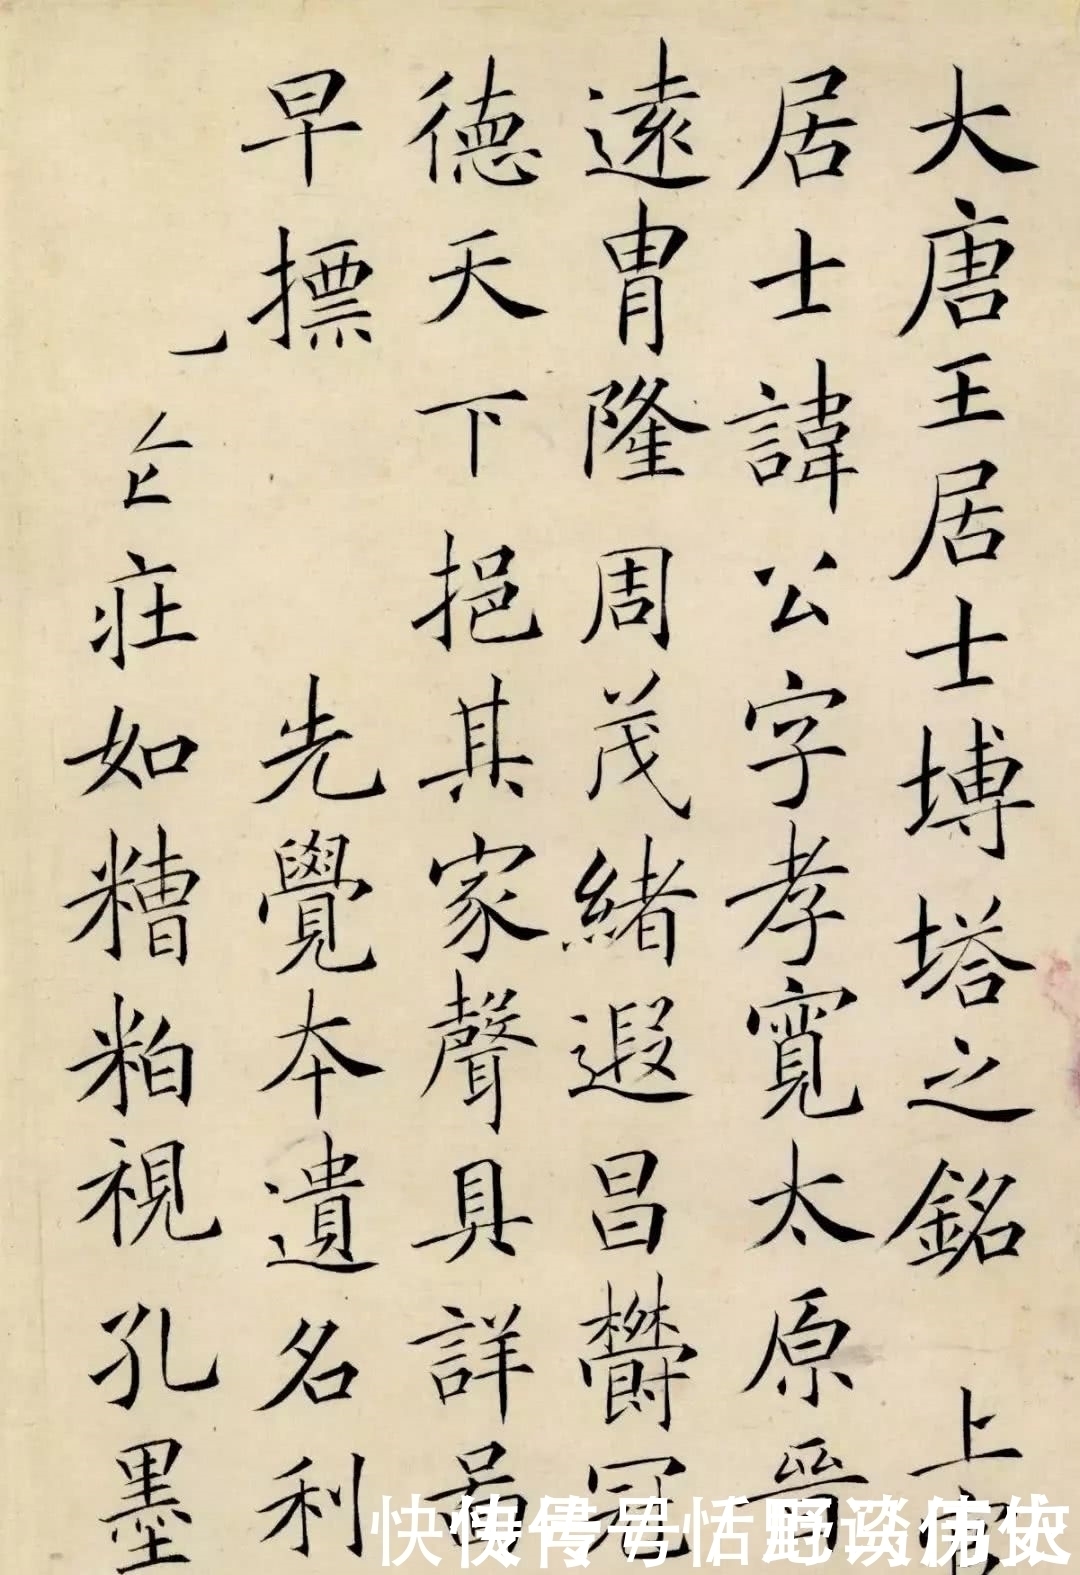 大唐王居士塼塔之銘 上
居士諱公字孝寬太原晉
遠胄隆周茂緒遐昌欝冠
德天下挹其家聲具詳啚
早摽 先覺本遺名利
莊如糟粕視孔墨